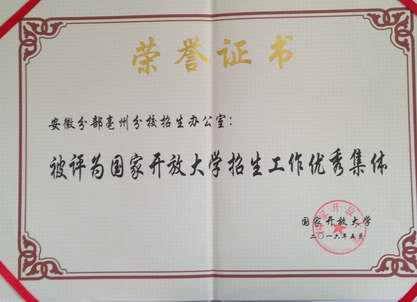 荣誉证书
安徽分部亳州分校招生办公室：
被评为国家开放大学招生工作优秀集体
国家开放大学
二〇一六年五月